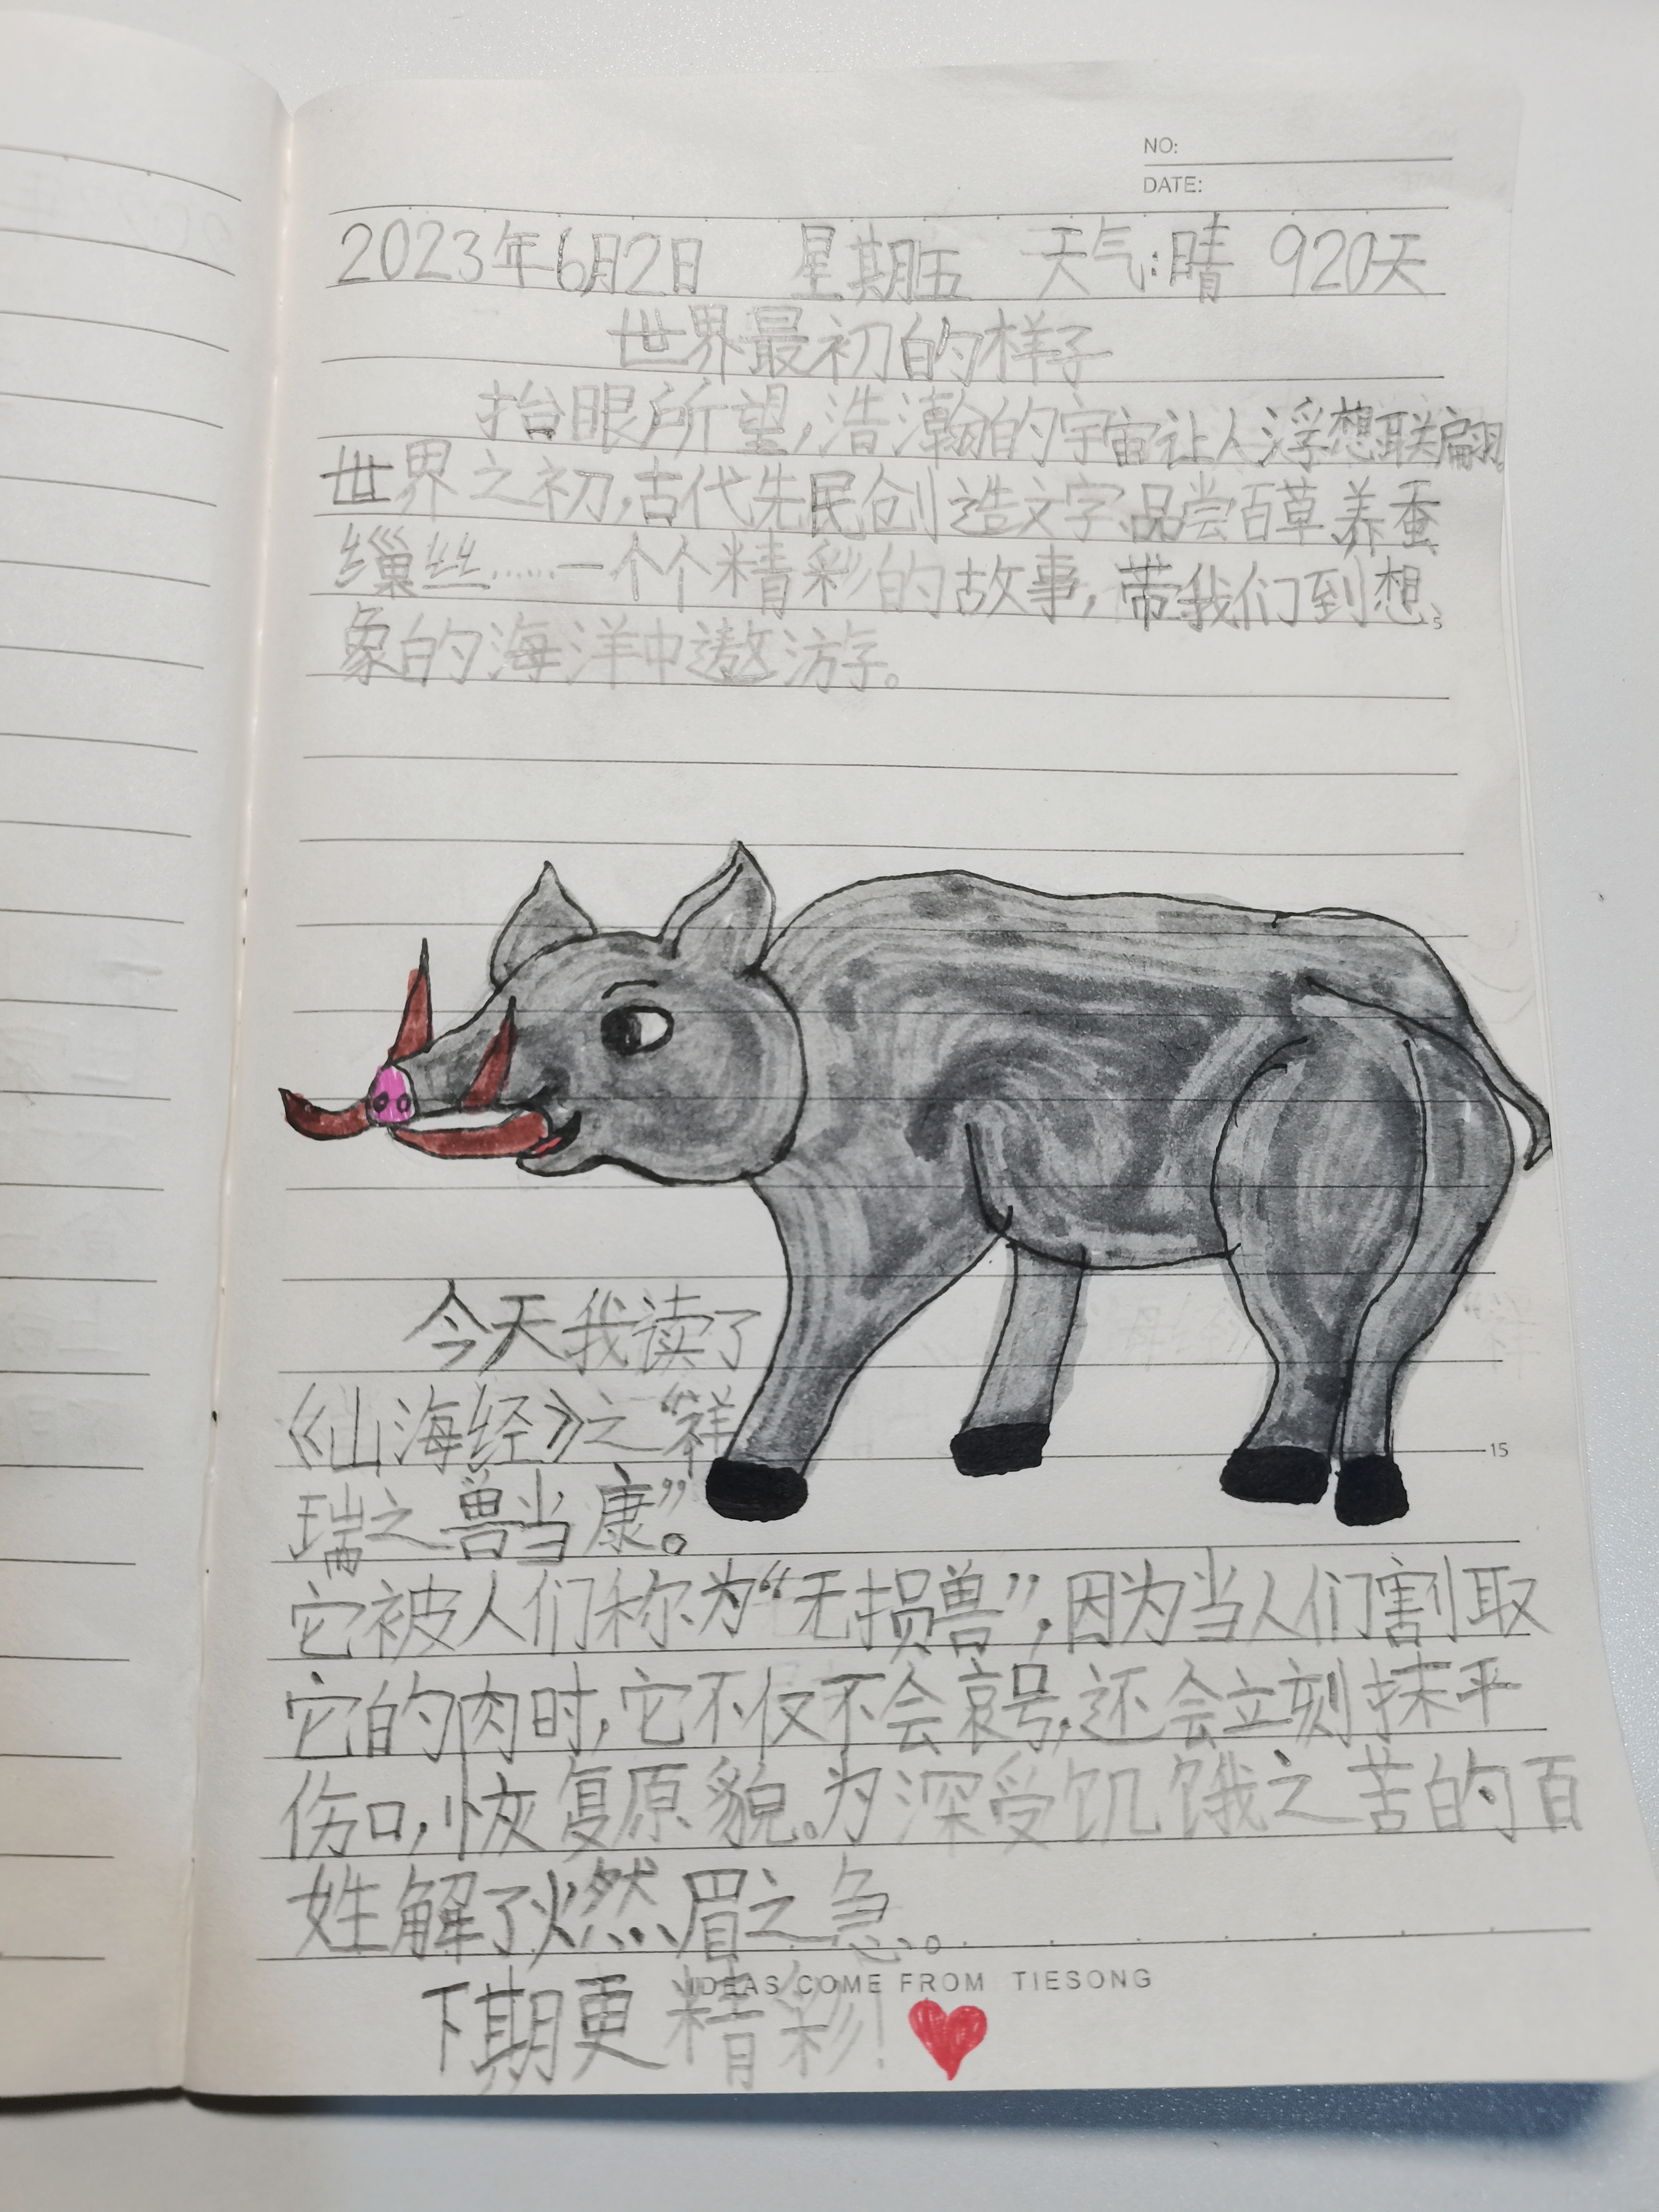 NO:
DATE:
2023年6月2日 星期五 天气:晴 920天
世界最初的样子
抬眼所望,浩瀚的宇宙让人浮想联翩。
世界之初,古代先民创造文字、品尝百草、养蚕
缫丝……一个个精彩的故事,带我们到想
5
象的海洋中遨游。
今天我读了
《山海经》之“祥
15
瑞之兽当康”。
它被人们称为“无损兽”,因为当人们割取
它的肉时,它不仅不会哀号,还会立刻抹平
伤口,恢复原貌。为深受饥饿之苦的百
姓解了燃眉之急。
IDEAS COME FROM TIESONG
下期更精彩!